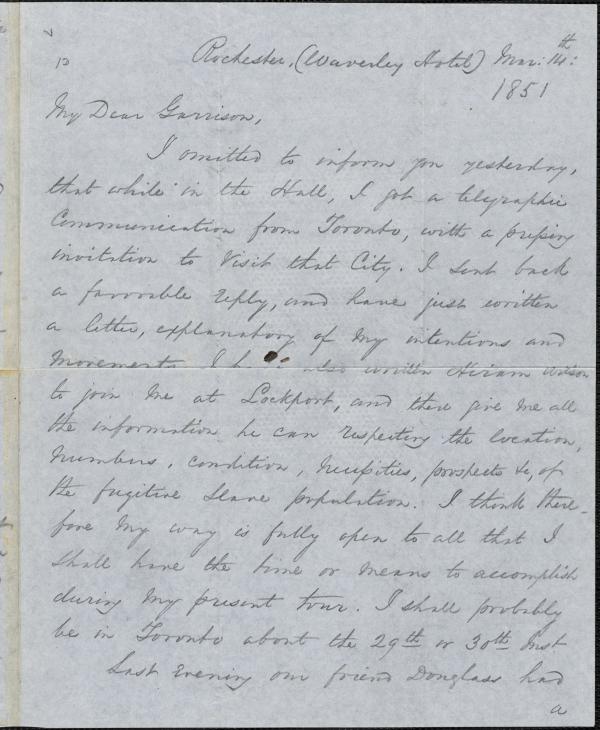 Rochester, (Waverley Hotel) Mar: 14th:
1851
My Dear Garrison,
I omitted to inform you yesterday,
that while in the Hall, I got a telegraphic
Communication from Toronto, with a pressing
invitation to Visit that City. I sent back
a favorable reply, and have just written
a letter, explanatory of my intentions and
Movements. I also written Hiram Wilson
to join me at Lockport, and there give me all
the information he can respecting the location,
Numbers, condition, necessities, prospects &c, of
the fugitive slave population. I think there-
fore my way is fully open to all that I
shall have the time or means to accomplish
during my present tour. I shall probably
be in Toronto about the 29th or 30th Inst
Last Evening our friend Douglass had
a